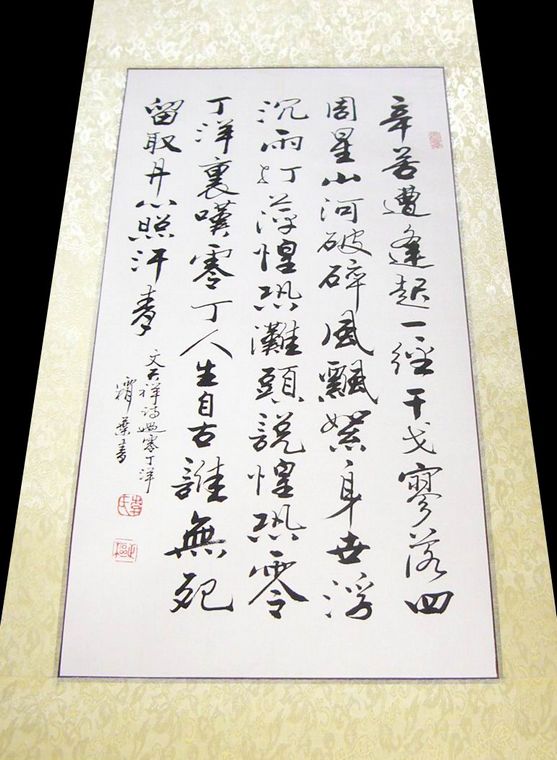 辛苦遭逢起一經干戈寥落四
周星山河破碎風飄絮身世浮
沉雨打萍惶恐灘頭說惶恐零
丁洋裏嘆零丁人生自古誰無死
留取丹心照汗青
文天祥詩過零丁洋
葉書